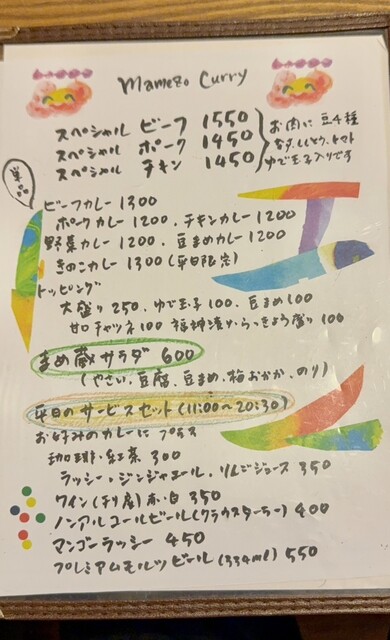 Mamezo Curry
スペシャル ビーフ 1550
スペシャル ポーク 1450
スペシャル チキン 1450
お肉に 豆4種
なす、ししとう、トマト
ゆで玉子入りです
単品
ビーフカレー 1300
ポークカレー 1200、チキンカレー 1200
野菜カレー 1200、豆まめカレー 1200
きのこカレー 1300 (平日限定)
トッピング
大盛り 250、ゆで玉子 100、豆まめ 100
甘口チャツネ 100 福神漬・らっきょう盛り 100
まめ蔵サラダ 600
(やさい、豆腐、豆まめ、梅おかか、のり)
平日のサービスセット (11:00~20:30)
お好みのカレーに プラス
珈琲・紅茶 300
ラッシー・ジンジャエール、りんごジュース 350
ワイン (チリ産) 赤・白 350
ノンアルコールビール (クラウスターラー) 400
マンゴーラッシー 450
プレミアムモルツ ビール (334ml) 550